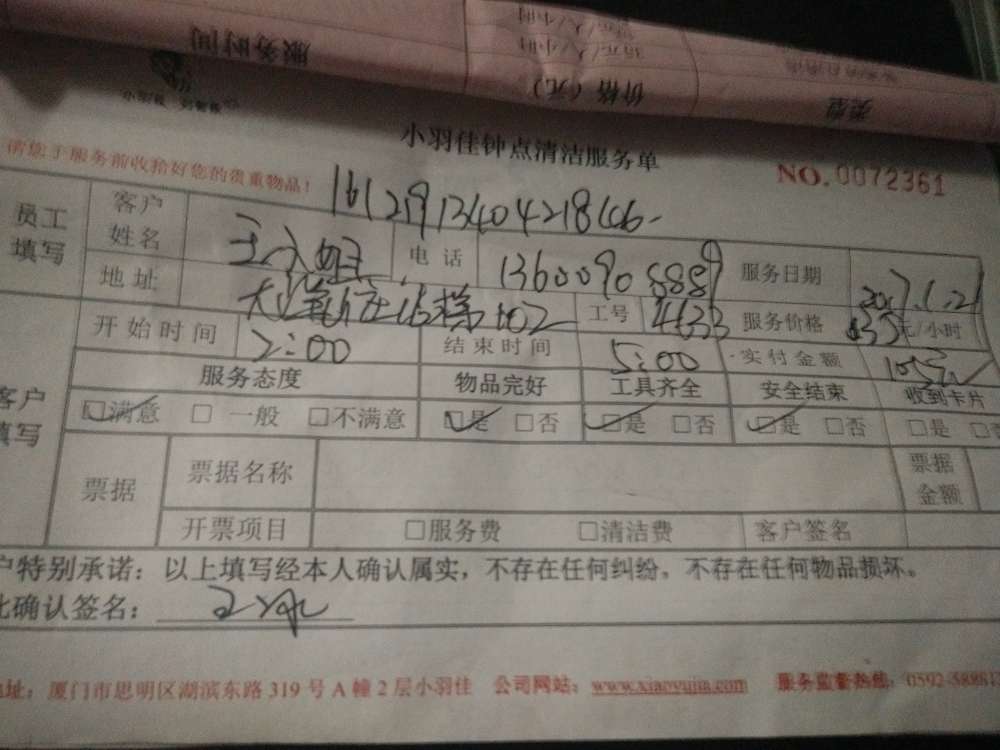 服务时间 价格（元） 类型
小羽佳钟点清洁服务单
请您于服务前收拾好您的贵重物品！ NO.0072361
161219134042186
员工填写 客户姓名 电话 13600908889 服务日期 2017.1.21
地址 工号 4633 服务价格 35元/小时
开始时间 2:00 结束时间 5:00 实付金额 105元
客户填写 服务态度 物品完好 工具齐全 安全结束 收到卡片
□满意 □一般 □不满意 □是 □否 □是 □否 □是 □否 □是 □否
票据 票据名称 票据金额
开票项目 □服务费 □清洁费 客户签名
户特别承诺：以上填写经本人确认属实，不存在任何纠纷，不存在任何物品损坏。
此确认签名：
地址：厦门市思明区湖滨东路319号A幢2层小羽佳 公司网站：www.xiaoyujia.com 服务监督热线：0592-588812